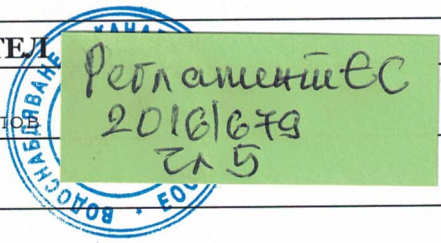 ТЕЛ
Регламент ЕС
2016/679
чл 5
ВОДОСНАБДЯВАНЕ
КАНАЛ
ЕОО